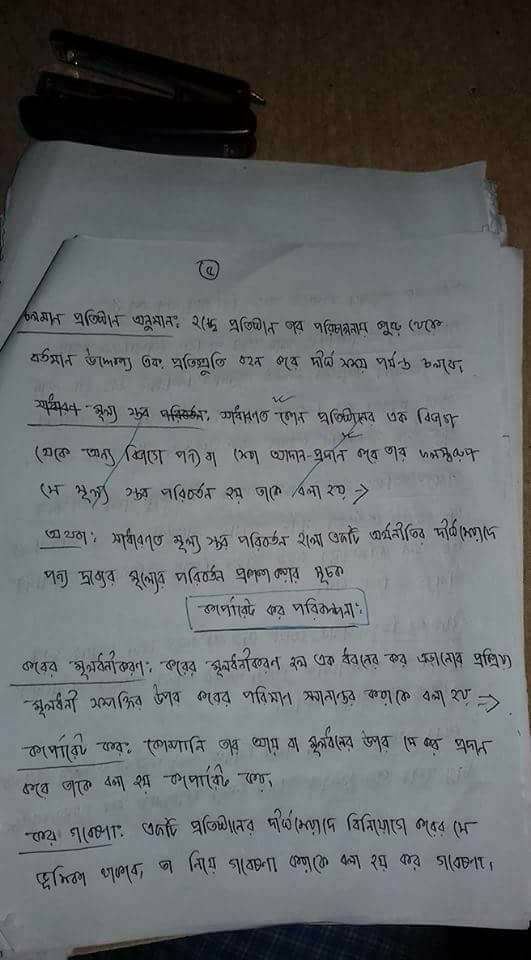 ৫
চলমান প্রতিষ্ঠান অনুমান: প্রতিষ্ঠান তার পরিকল্পনায় শুরু থেকে
বর্তমান উদ্দেশ্য এবং প্রতিশ্রুতি বহন করে দীর্ঘ সময় পর্যন্ত চলবে,
সাধারণ মূল্য স্তর পরিবর্তন: সাধারণত কোন প্রতিষ্ঠানের এক বিভাগ
থেকে অন্য বিভাগে পন্য বা সেবা আদান-প্রদান করে তার ফলস্বরূপ
যে মূল্য স্তর পরিবর্তন হয় তাকে বলা হয় ⇒
অথবা: সাধারণত মূল্য স্তর পরিবর্তন হলো একটি অর্থনীতির দীর্ঘমেয়াদে
পন্য দ্রব্যের মূল্যের পরিবর্তন প্রকাশ করার সূচক
কর্পোরেট কর পরিকল্পনা:
করের মূলধনীকরণ: করের মূলধনীকরণ হল এক ধরনের কর এড়ানোর প্রক্রিয়া
মূলধনী সম্পত্তির উপর করের পরিমান স্থানান্তর করাকে বলা হয় ⇒
কর্পোরেট কর: কোম্পানি তার আয় বা মূলধনের উপর যে কর প্রদান
করে তাকে বলা হয় কর্পোরেট কর,
কর গবেষণা: একটি প্রতিষ্ঠানের দীর্ঘমেয়াদে বিনিয়োগে করের যে
ভূমিকা থাকবে, তা নিয়ে গবেষণা করাকে বলা হয় কর গবেষণা,